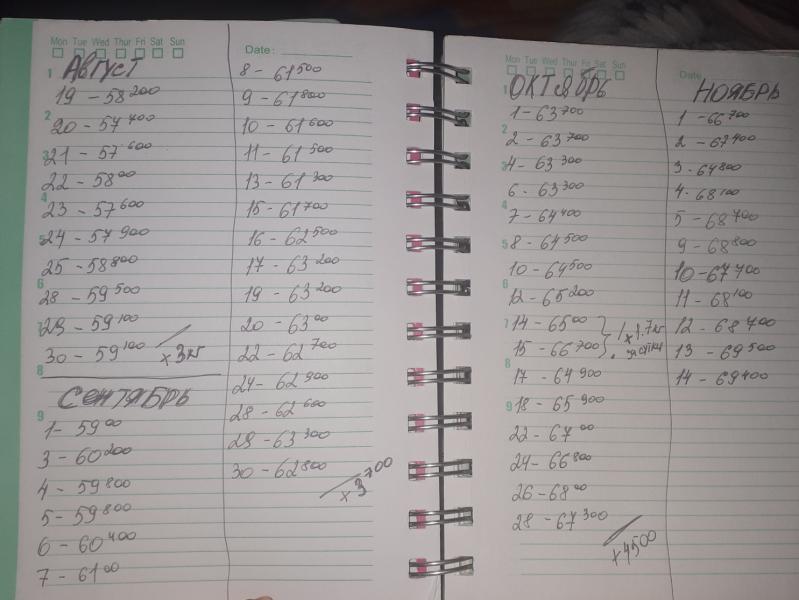 Mon Tue Wed Thur Fri Sat Sun
Август
19 - 58 200
20 - 57 400
21 - 57 600
22 - 58 00
23 - 57 600
24 - 57 900
25 - 58 800
28 - 59 500
29 - 59 100
30 - 59 100
x 3 кг
Сентябрь
1 - 59 00
3 - 60 200
4 - 59 800
5 - 59 800
6 - 60 400
7 - 61 00
Date:
8 - 61 500
9 - 61 800
10 - 61 600
11 - 61 500
13 - 61 300
15 - 61 700
16 - 62 500
17 - 63 200
19 - 63 200
20 - 63 00
22 - 62 700
24 - 62 900
28 - 62 600
29 - 63 300
30 - 62 800
x 3 700
Mon Tue Wed Thur Fri Sat Sun
Октябрь
1 - 63 700
2 - 63 700
4 - 63 300
6 - 63 300
7 - 64 400
8 - 64 500
10 - 64 500
12 - 65 200
14 - 65 00
15 - 66 700
x 1.7 кг
за сутки
17 - 64 900
18 - 65 900
22 - 67 00
24 - 66 800
26 - 68 00
28 - 67 300
x 4500
Date
Ноябрь
1 - 66 700
2 - 67 400
3 - 64 800
4 - 68 100
5 - 68 700
9 - 68 800
10 - 67 700
11 - 68 100
12 - 68 700
13 - 69 500
14 - 69 400